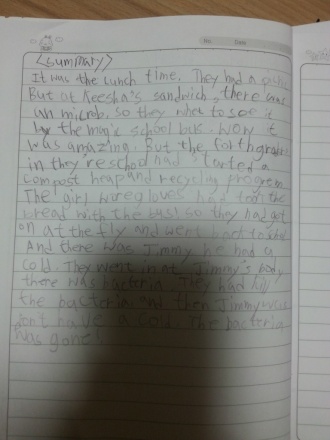 No. Date
<Summary>
It was the lunch time. They had a
But at Keesha's sandwich, there was
un microb. so they whet to see it
by the magic school bus. Wow it
was amazing. But the forth grader
in they're school had started a
compost heap and recycling program
The girl wore gloves had took the
bread with the bus! so they had got
on at the fly and went back to
And there was Jimmy he had a
cold. They went in at Jimmy's body
there was bacteria. They had kill
the bacteria and then Jimmy was
don't have a cold. The bacteria
was gone!